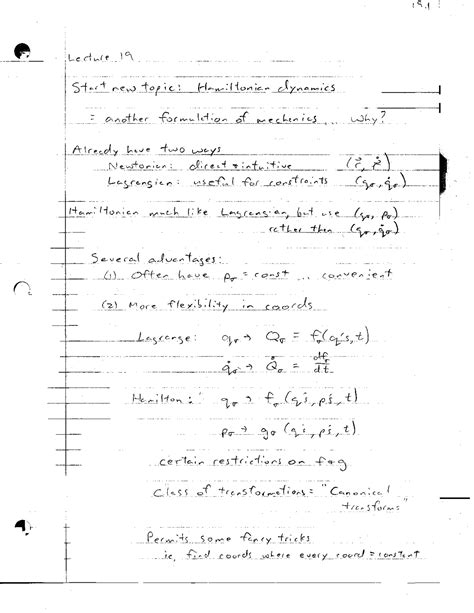 19.1
Lecture 19
Start new topic: Hamiltonian dynamics
= another formulation of mechanics... why?
Already have two ways
Newtonian: direct & intuitive (r⃗, ṙ⃗)
Lagrangian: useful for constraints (qσ, q̇σ)
Hamiltonian much like Lagrangian, but use (qσ, pσ)
rather than (qσ, q̇σ)
Several advantages:
(1) Often have pσ = const ... convenient
(2) More flexibility in coords
Lagrange: qσ → Qσ = fσ(q's, t)
q̇σ → Q̇σ = dfσ/dt
Hamilton: qσ → fσ(q's, p's, t)
pσ → gσ(q's, p's, t)
certain restrictions on f & g
Class of transformations = "Canonical
transforms"
Permits some fancy tricks
ie, find coords where every coord = constant